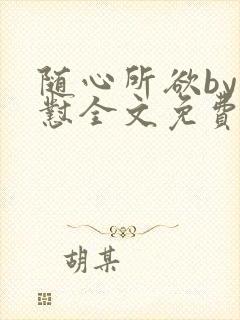 随心所欲by
怼全文免费
胡某